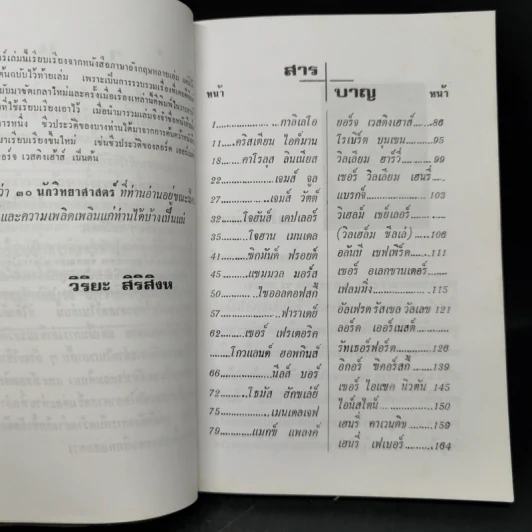 ร์เล่มนี้เรียบเรียงจากหนังสือภาษาอังกฤษหลายเล่ม
ต้นฉบับไว้ท้ายเล่ม เพราะเป็นการรวบรวมเรื่อง
การหนึ่ง ชีวประวัติของบางท่านได้มาจากการค้นคว้า
มาเรียบเรียงขึ้นใหม่ เช่นชีวประวัติของลอร์ด
จอร์จ เวสติงเฮ้าส์ เป็นต้น
ว่า ๓๐ นักวิทยาศาสตร์ ที่ท่านอ่านอยู่ขณะนี้
และความเพลิดเพลินแก่ท่านได้บ้างเป็นแน่
วิริยะ สิริสิงห
สารบาญ
หน้า
1 กาลิเลโอ
11 คริสเตียน ไอค์มาน
18 คาโรลุส ลินเนียส
22 เจมส์ จูล
27 เจมส์ วัตต์
32 โจฮันส์ เคปเลอร์
35 โจฮาน เมนเดล
41 ซิกมันด์ ฟรอยด์
45 แซมมวล มอร์ส
50 ไซออลคอฟสกี้
57 ฟาราเดย์
62 เซอร์ เฟรเดอริค
โกวแลนด์ ฮอพกินส์
66 นีลส์ บอร์
72 โธมัส ฮักซเล่ย์
75 เมนเดเลเจฟ
79 แมกซ์ แพลงค์
หน้า
ยอร์จ เวสติงเฮาส์ 86
โรเบิร์ต บุนเซน 95
วิลเลียม ฮาร์วี่ 99
เซอร์ วิลเลียม เฮนรี่
แบรกจ์ 103
วิเฮลม์ เซย์เลอร์
(วิลเฮล์ม ชีลเล่) 106
อลันบี เชฟเพิร์ด 111
เซอร์ อเลกซานเดอร์
เฟลมมิ่ง 115
อัลเฟรด รัสเซล วัลเลซ 121
ลอร์ด เออร์เนสต์
รัทเธอร์ฟอร์ด 126
อิกอร์ ซิคอร์สกี้ 139
เซอร์ ไอแซค นิวตัน 145
ไอน์สไตน์ 150
เฮนรี่ คาเวนดิช 159
เฮนรี่ เฟเบอร์ 164